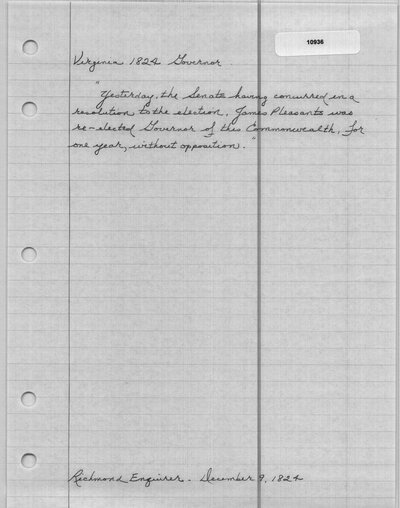 10936
Virginia 1824 Governor
"Yesterday, the Senate having concurred in a
resolution to the election, James Pleasants was
re-elected Governor of this Commonwealth, for
one year, without opposition."
Richmond Enquirer - December 9, 1824